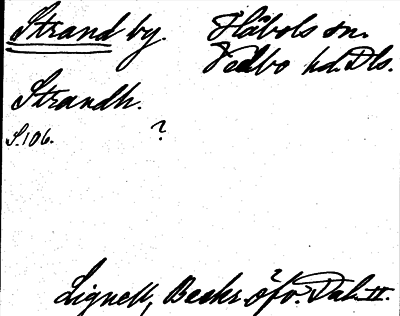 Strand by. Håbols sn.
Vedbo hd. Dls.
Strandh.
S. 106. ?
Lignell, Beskr. öfv. Dal. II.